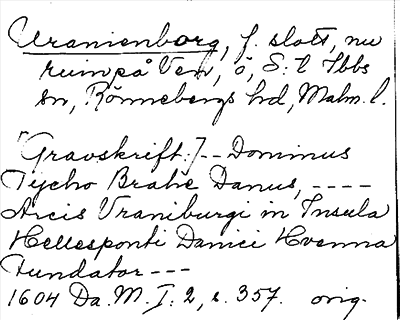 Uranienborg, f. slott, nu
ruin på Ven, ö, S:t Ibbs
sn, Rönnebergs hd, Malm. l.
[Gravskrift:] -- Dominus
Tycho Brahe Danus, ----
Arcis Uraniburgi in Insula
Hellesponti Danici Hvenna
Fundator ---
1604 Da. M. I: 2, s. 357. orig.